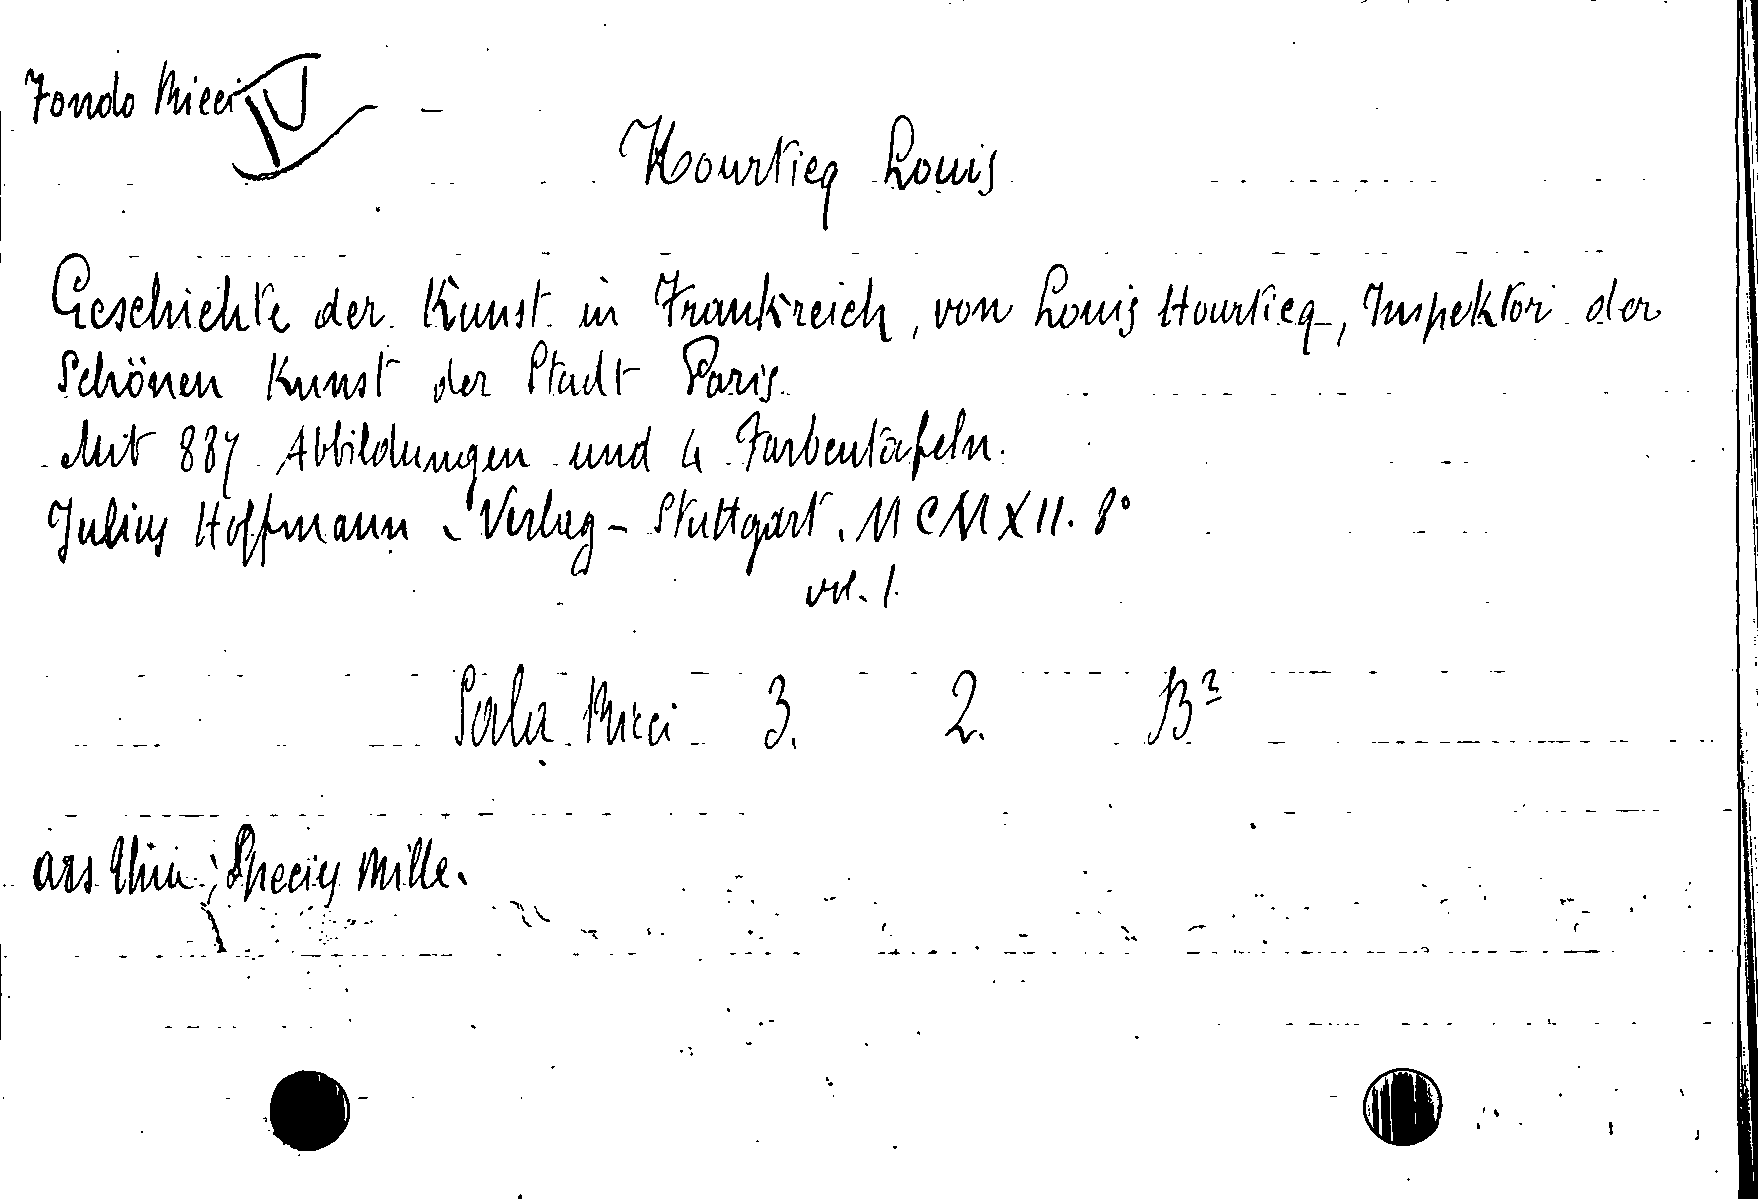 Fondo Ricci IV
Hourticq Louis
Geschichte der Kunst in Frankreich, von Louis Hourticq, Inspektor der
Schönen Kunst der Stadt Paris.
Mit 887 Abbildungen und 4 Farbentafeln.
Julius Hoffmann - Verlag - Stuttgart. MCMXII. 8°
vol. 1.
Sala Ricci 3. 2. B²
Ars Una; Species Mille.